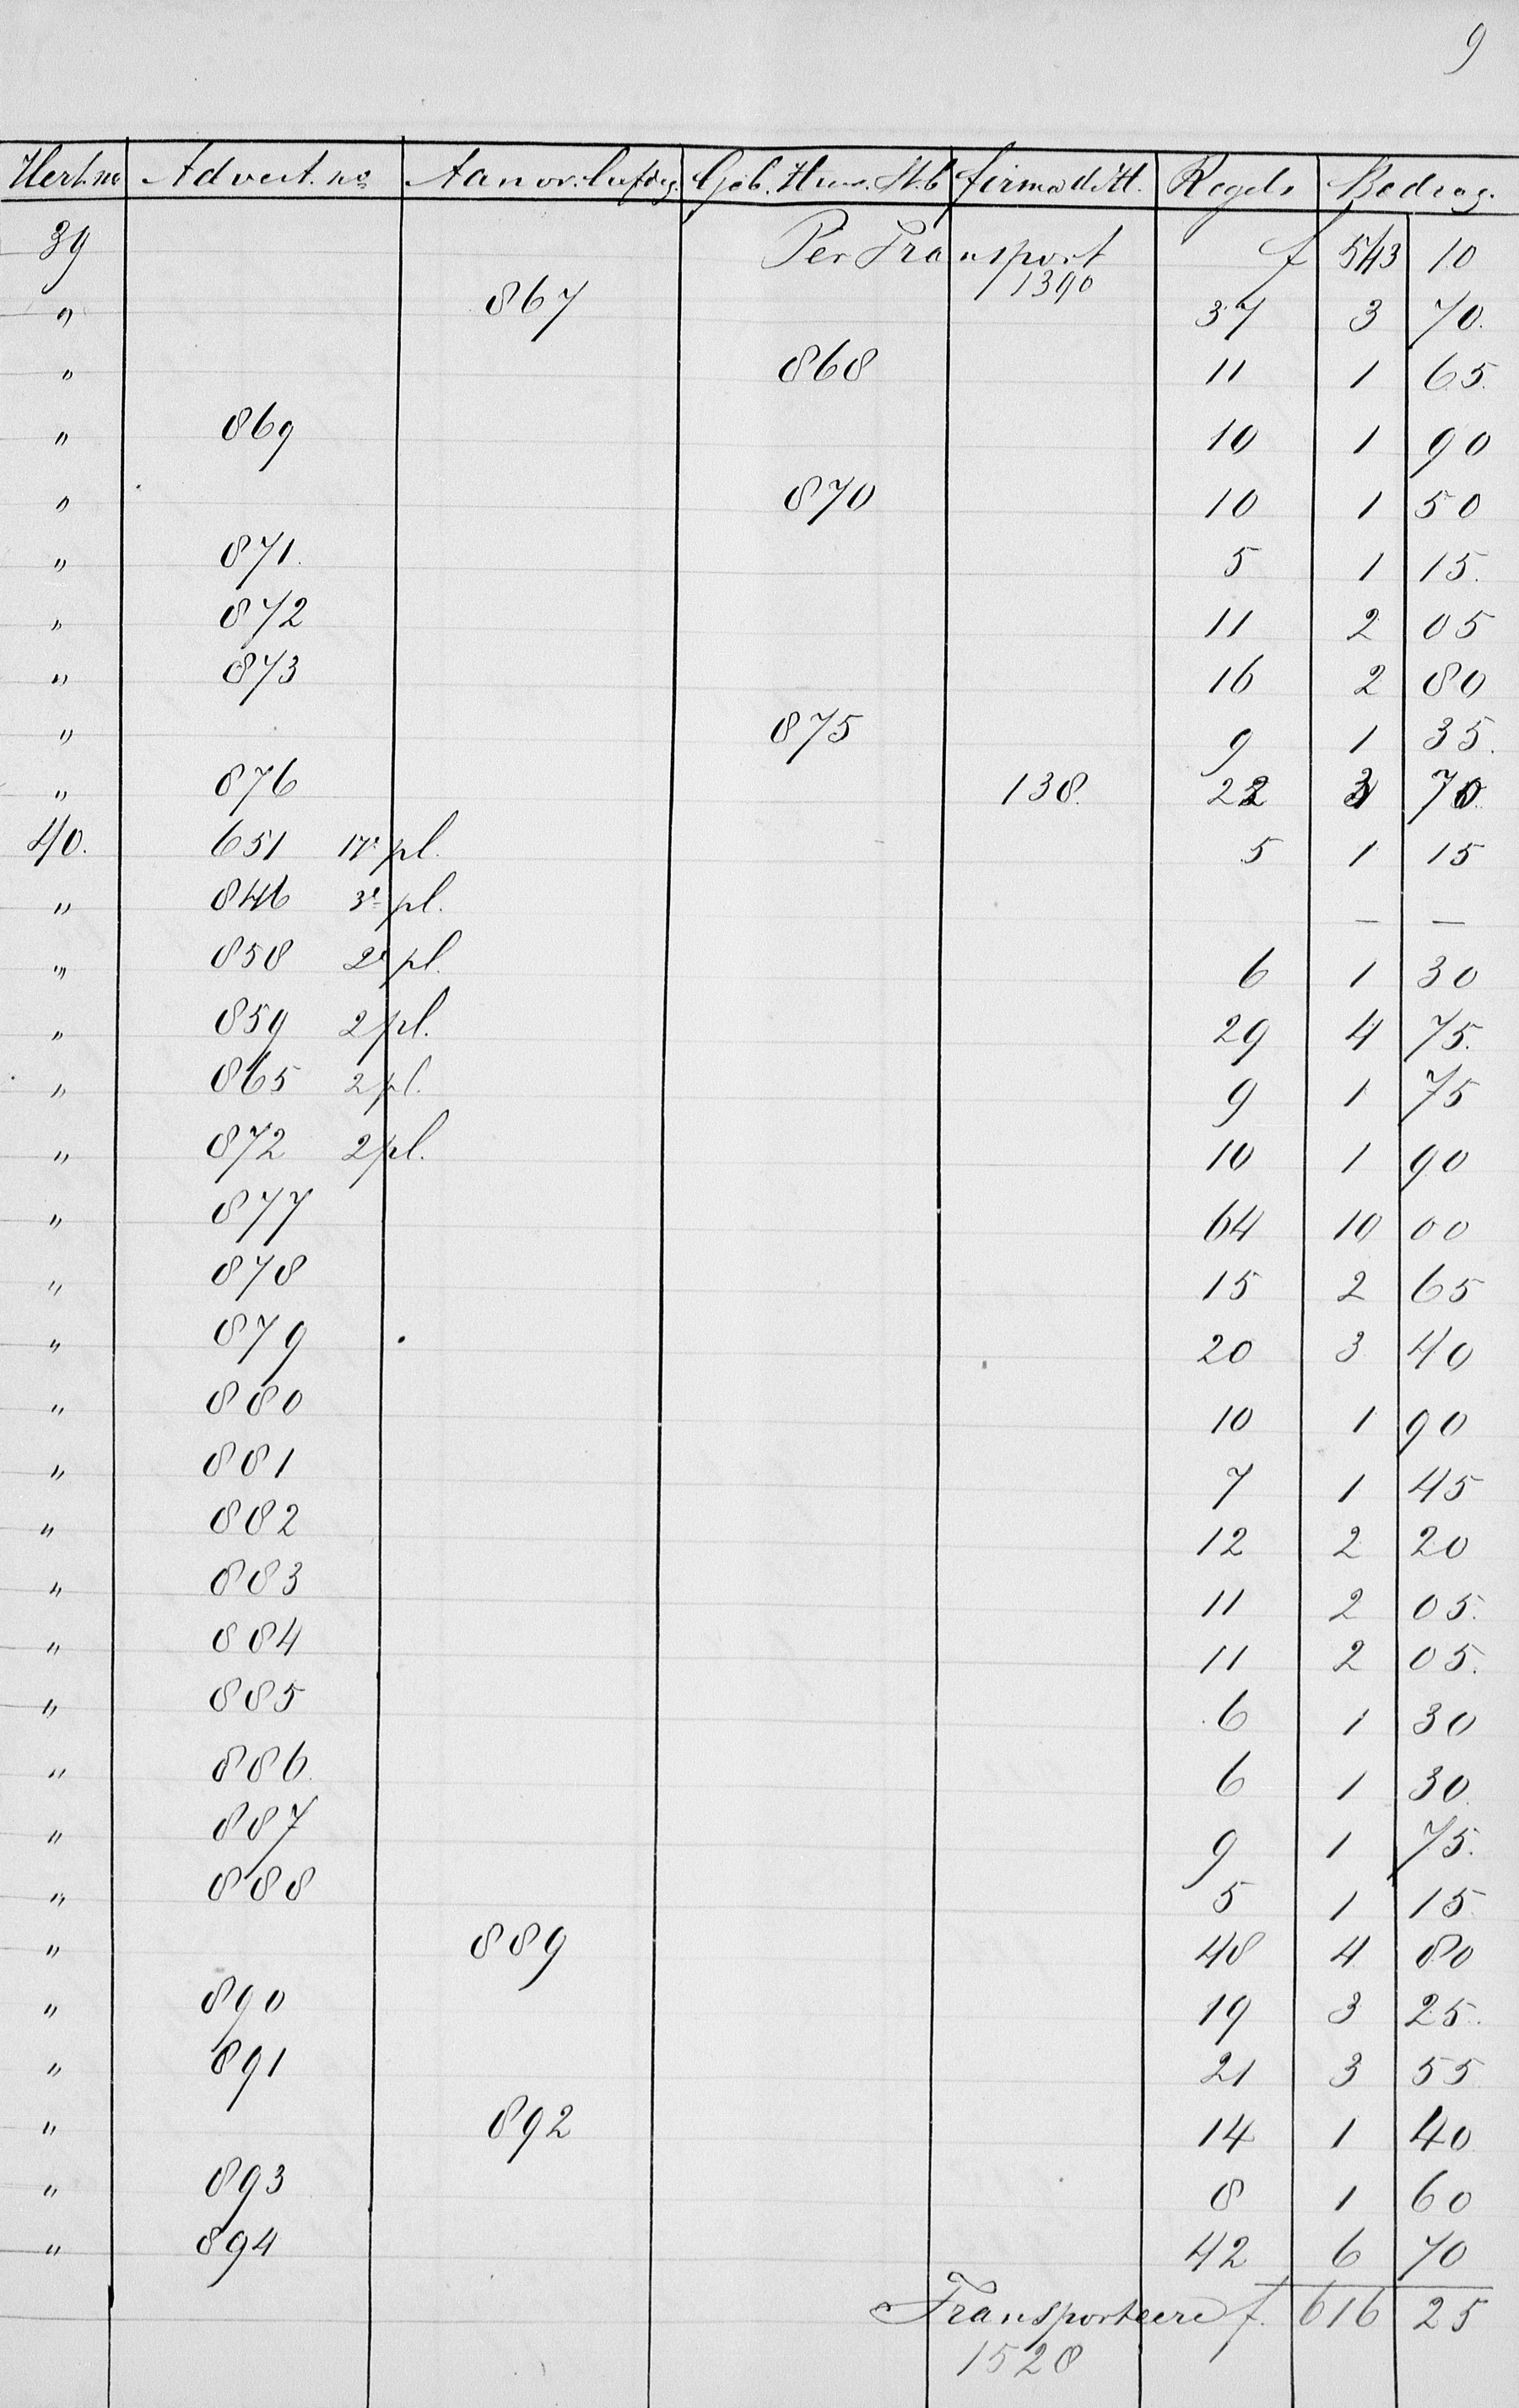 9
Advert. no Regels Bedrag.
39 Per Transport f 543 10
1390
" 867 37 3 70.
" 868 11 1 65.
" 869 10 1 90
" 870 10 1 50
" 871. 5 1 15.
" 872 11 2 05
" 873 16 2 80
" 875 9 1 35.
" 876 138. 22 3 70.
40. 651 17e pl. 5 1 15
" 846 3e pl. — —
" 858 2e pl. 6 1 30
" 859 2 pl. 29 4 75.
" 865 2 pl. 9 1 75
" 872 2 pl. 10 1 90
" 877 64 10 00
" 878 15 2 65
" 879 20 3 40
" 880 10 1 90
" 881 7 1 45
" 882 12 2 20
" 883 11 2 05.
" 884 11 2 05.
" 885 6 1 30
" 886. 6 1 30.
" 887 9 1 75.
" 888 5 1 15
" 889 48 4 80
" 890 19 3 25.
" 891 21 3 55
" 892 14 1 40
" 893 8 1 60
" 894 42 6 70
Transporteere f. 616 25
1528